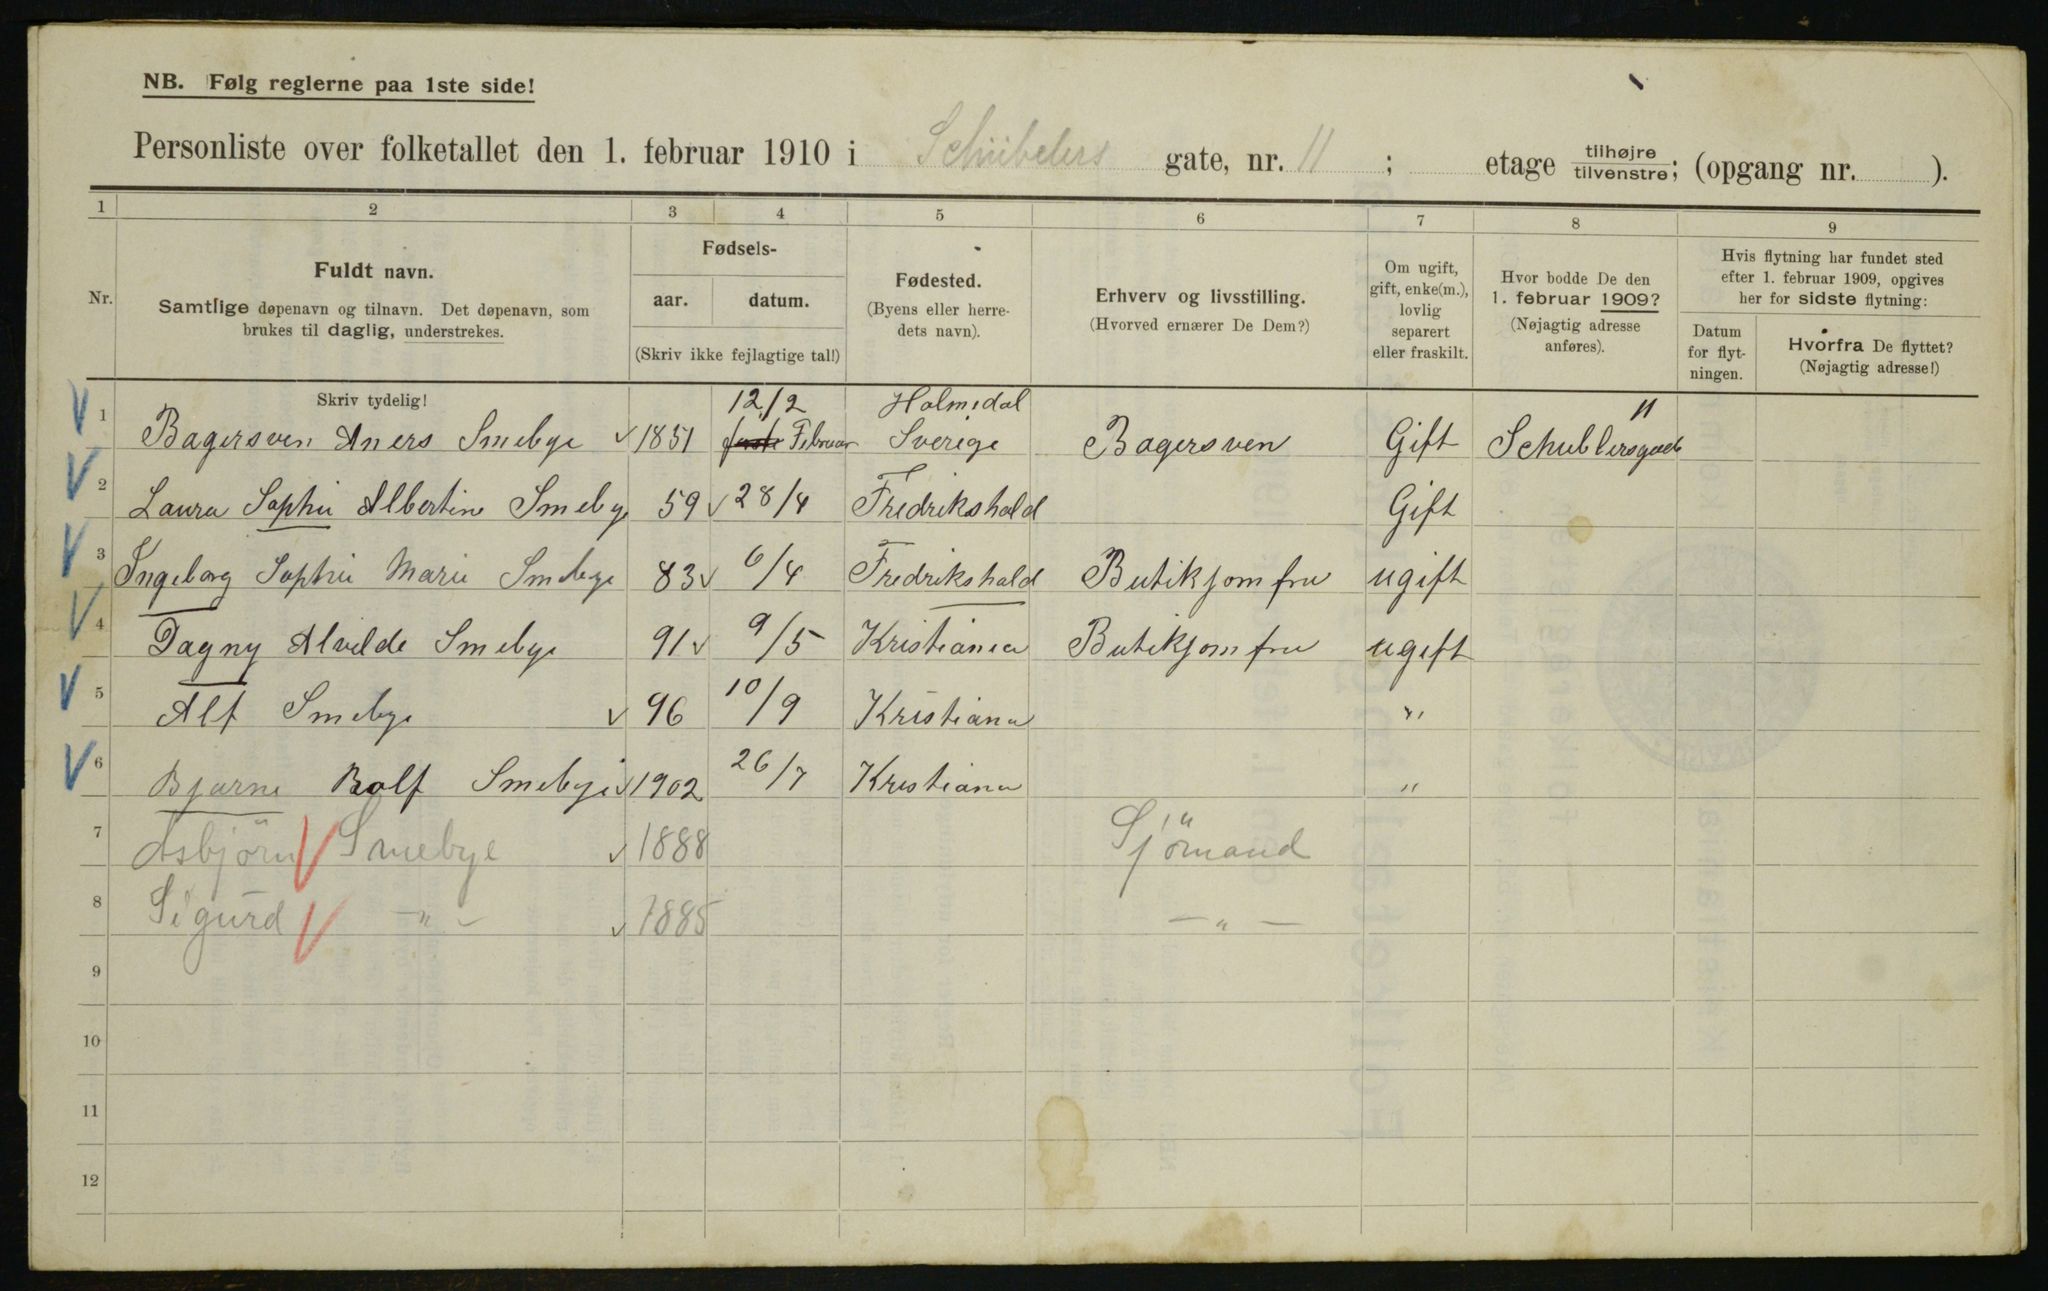 NB. Følg reglerne paa 1ste side!
Personliste over folketallet den 1. februar 1910 i Schübelers gate, nr. 11 ; etage tilhøjre/tilvenstre; (opgang nr. ).
1 2 3 4 5 6 7 8 9
Nr. Fuldt navn. Samtlige døpenavn og tilnavn. Det døpenavn, som brukes til daglig, understrekes.
Fødsels-
aar. datum.
(Skriv ikke fejlagtige tal!)
Fødested. (Byens eller herredets navn).
Erhverv og livsstilling. (Hvorved ernærer De Dem?)
Om ugift, gift, enke(m.), lovlig separert eller fraskilt.
Hvor bodde De den 1. februar 1909? (Nøjagtig adresse anføres).
Hvis flytning har fundet sted efter 1. februar 1909, opgives her for sidste flytning:
Datum for flytningen.
Hvorfra De flyttet? (Nøjagtig adresse!)
Skriv tydelig! 12/2 Holmedal 11
1 Bagersven Aners Smebye 1851 Februar Sverige Bagersven Gift Schublersgade
2 Laura Sophie Albertine Smebye 59 28/4 Fredrikshald Gift
3 Ingeborg Sophie Marie Smebye 83 6/4 Fredrikshald Butikjomfru ugift
4 Dagny Alvilde Smebye 91 9/5 Kristiania Butikjomfru ugift
5 Alf Smebye 96 10/9 Kristiana "
6 Bjarne Rolf Smebye 1902 26/7 Kristiana "
7 Asbjörn Smebye 1888 Sjömand
8 Sigurd -"- 1885 -"-
9
10
11
12